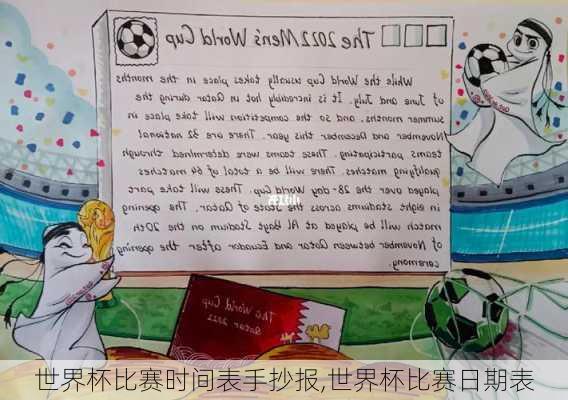 The 2022 Men's World Cup
While the World Cup usually takes place in the months
of June and July. It is incredibly hot in Qatar during the
summer months. and so the competition will take place in
November and December this year. There are 32 national
teams participating. These teams were determined through
qualifying matches. There will be a total of 64 matches
played over the 28-day World Cup. These will take part
in eight stadiums across the State of Qatar. The opening
match will be played at Al Bayt Stadium on the 20th
of November between Qatar and Ecuador after the opening
ceremony.
The World Cup
Qatar 2022
世界杯比赛时间表手抄报,世界杯比赛日期表